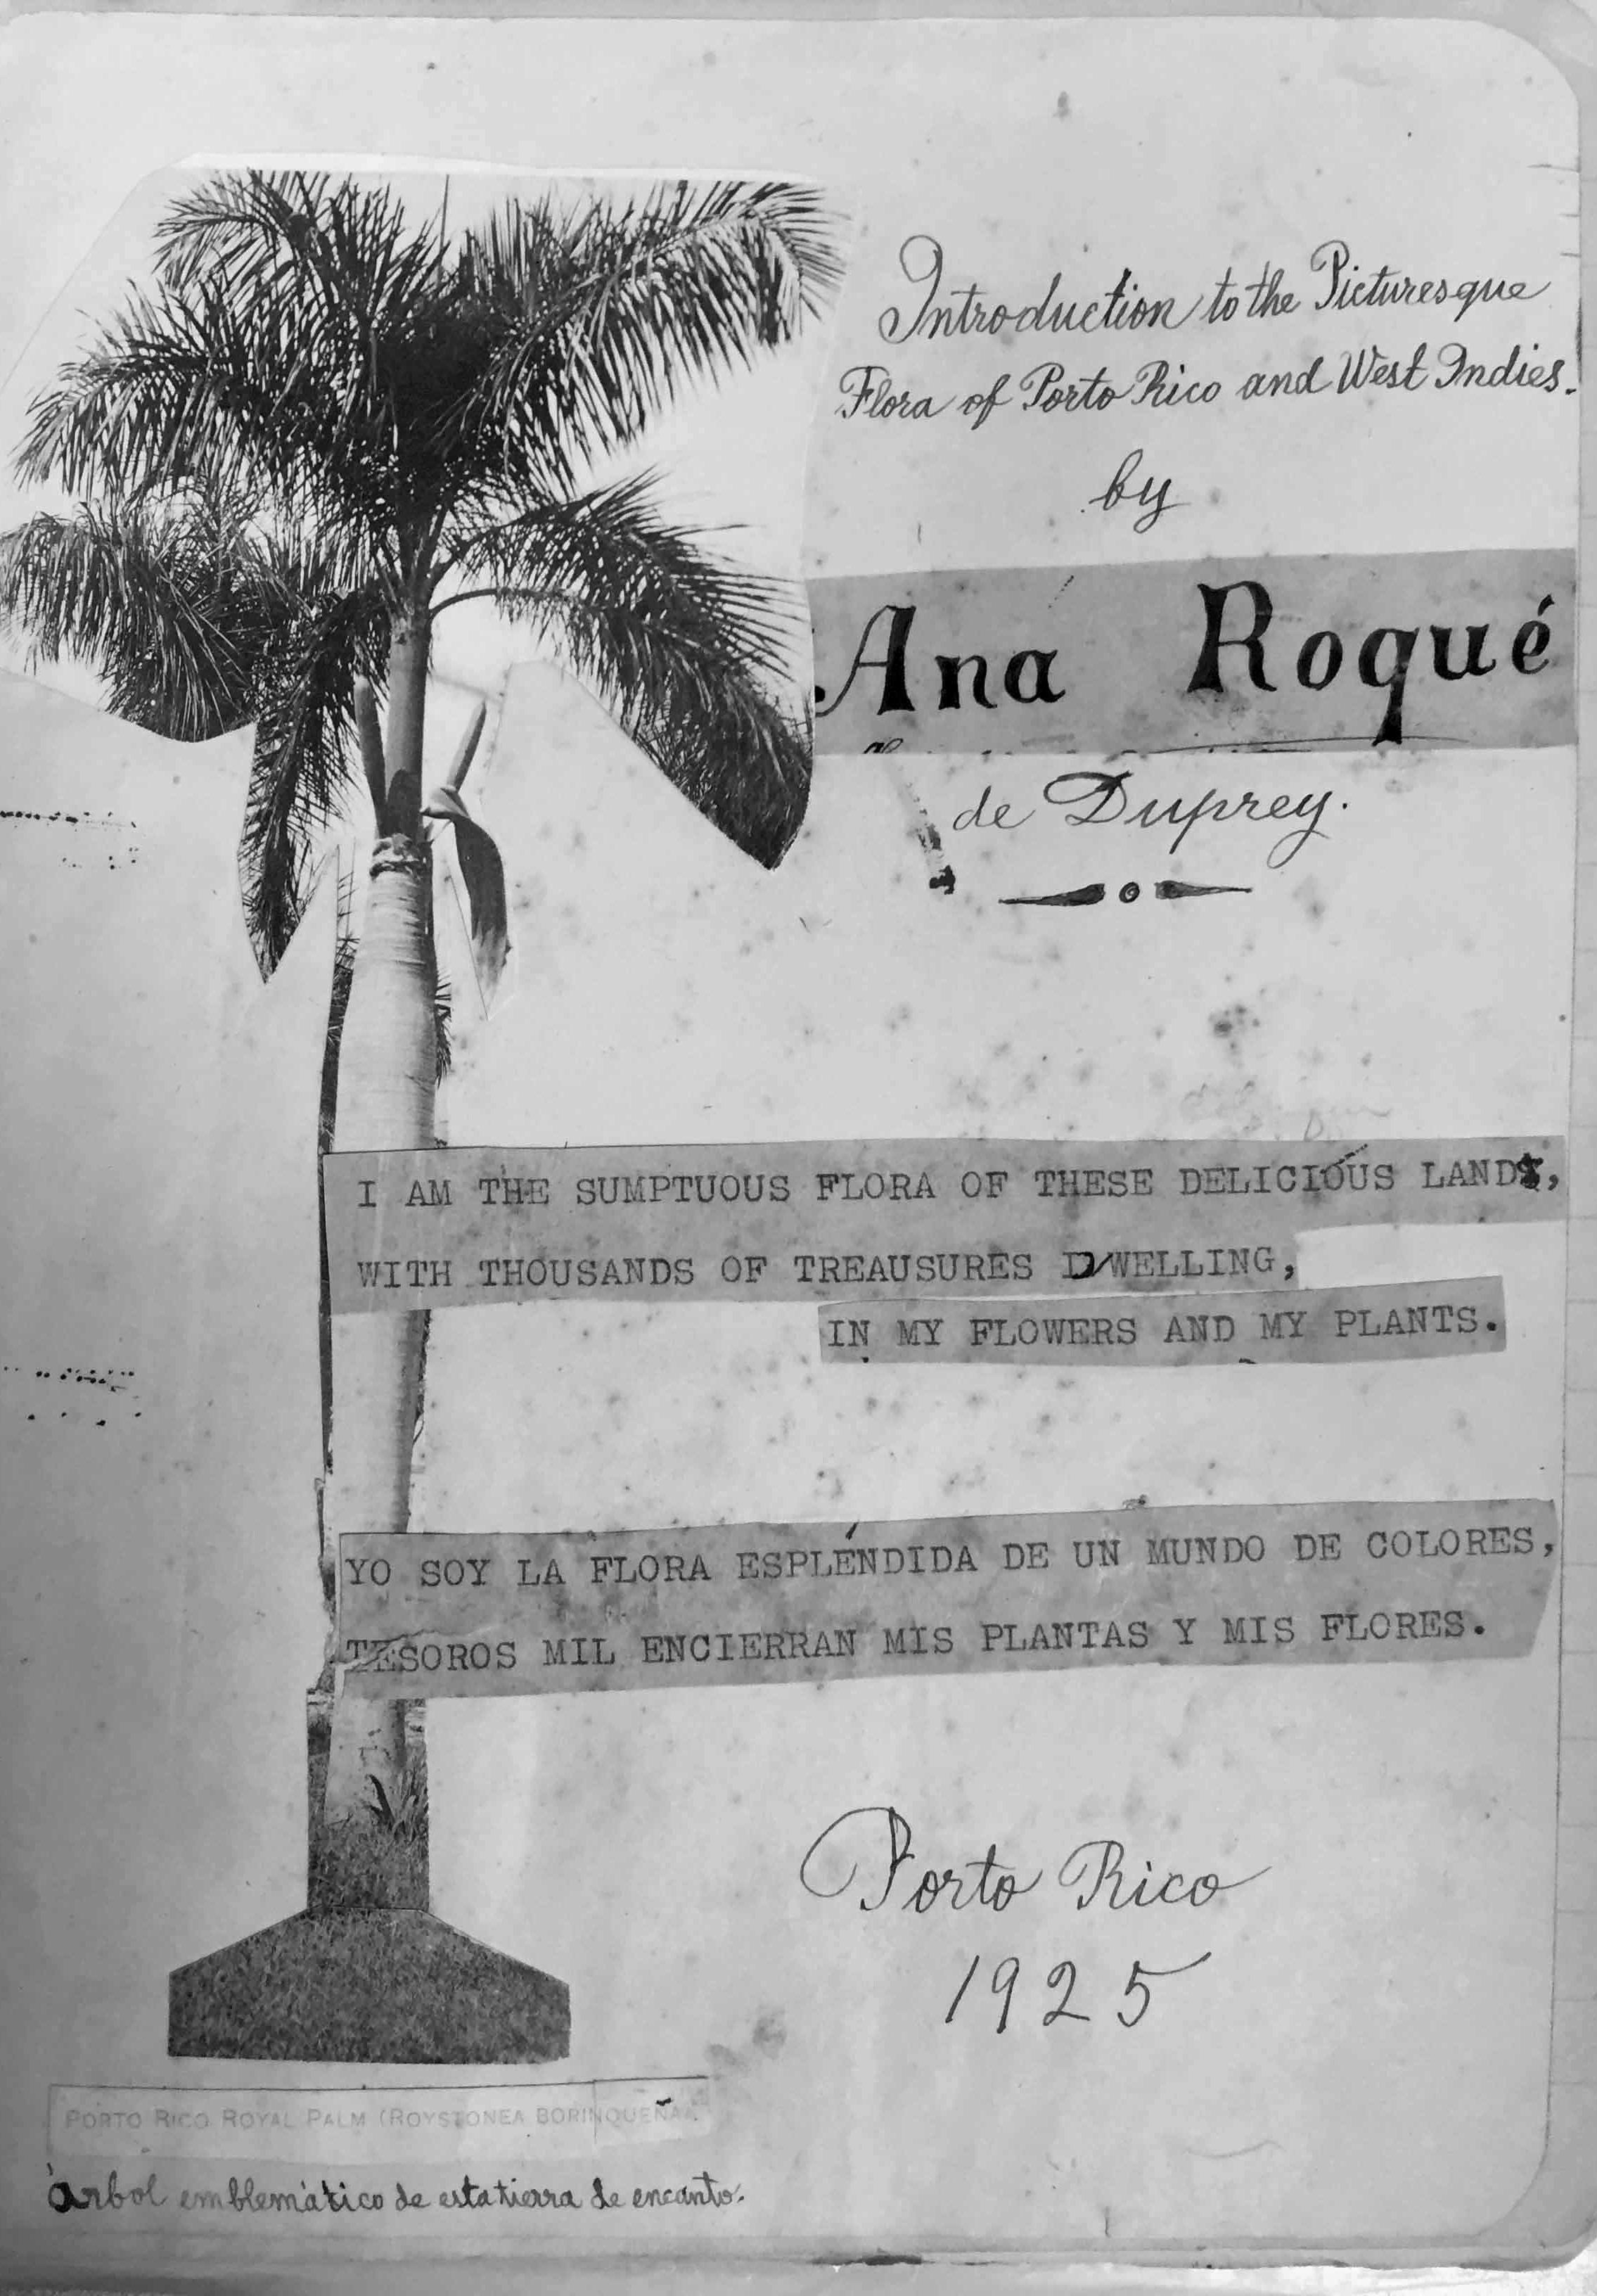 Introduction to the Picturesque
Flora of Porto Rico and West Indies.
by
Ana Roqué
de Duprey.
I AM THE SUMPTUOUS FLORA OF THESE DELICIOUS LANDS,
WITH THOUSANDS OF TREAUSURES DWELLING,
IN MY FLOWERS AND MY PLANTS.
YO SOY LA FLORA ESPLÉNDIDA DE UN MUNDO DE COLORES,
TESOROS MIL ENCIERRAN MIS PLANTAS Y MIS FLORES.
Porto Rico
1925
PORTO RICO ROYAL PALM (ROYSTONEA BORINQUEÑA
árbol emblemático de esta tierra de encanto.